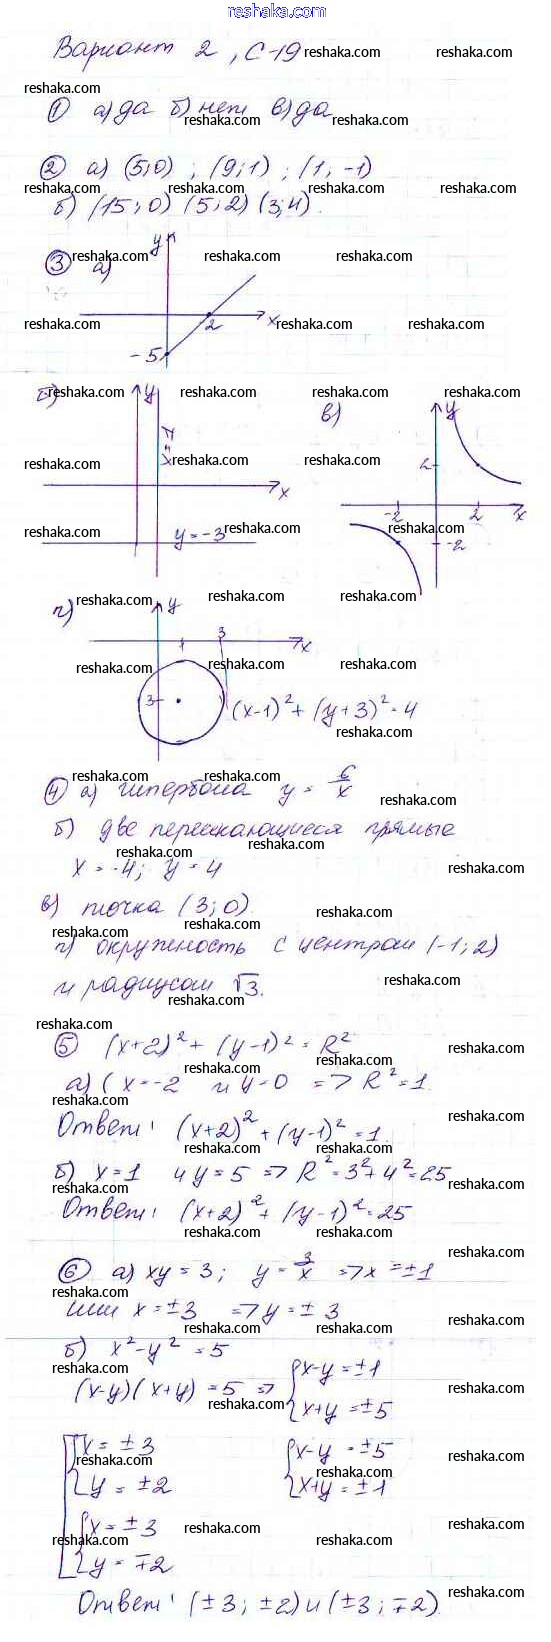 reshaka.com
Вариант 2, С-19
① а) да б) нет в) да
② а) (5;0) ; (9;1) ; (1, -1)
б) (15; 0) (5; 2) (3; 4).
③ а)
y
x
2
-5
б)
y
x = 7
x
y = -3
в)
y
2
-2
2
x
-2
г)
y
1
3
x
3
(x-1)² + (y+3)² = 4
④ а) гипербола y = 6/x
б) две пересекающиеся прямые
x = -4; y = 4
в) точка (3; 0).
г) окружность с центром (-1; 2)
и радиусом √3.
⑤ (x+2)² + (y-1)² = R²
а) ( x = -2 и y = 0 => R² = 1.
Ответ: (x+2)² + (y-1)² = 1.
б) x = 1 и y = 5 => R² = 3² + 4² = 25
Ответ: (x+2)² + (y-1)² = 25
⑥ а) xy = 3; y = 3/x => x = ±1
или x = ±3 => y = ± 3
б) x² - y² = 5
(x-y)(x+y) = 5 => { x-y = ±1
x+y = ±5
[ { x = ±3 { x-y = ±5
y = ±2 x+y = ±1
{ x = ±3
y = ∓2
Ответ: (±3; ±2) и (±3; ∓2).